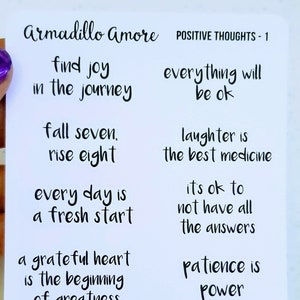 Armadillo Amore
POSITIVE THOUGHTS - 1
find joy
in the journey
everything will
be ok
fall seven,
rise eight
laughter is
the best medicine
every day is
a fresh start
its ok to
not have all
the answers
a grateful heart
is the beginning
of greatness
patience is
power